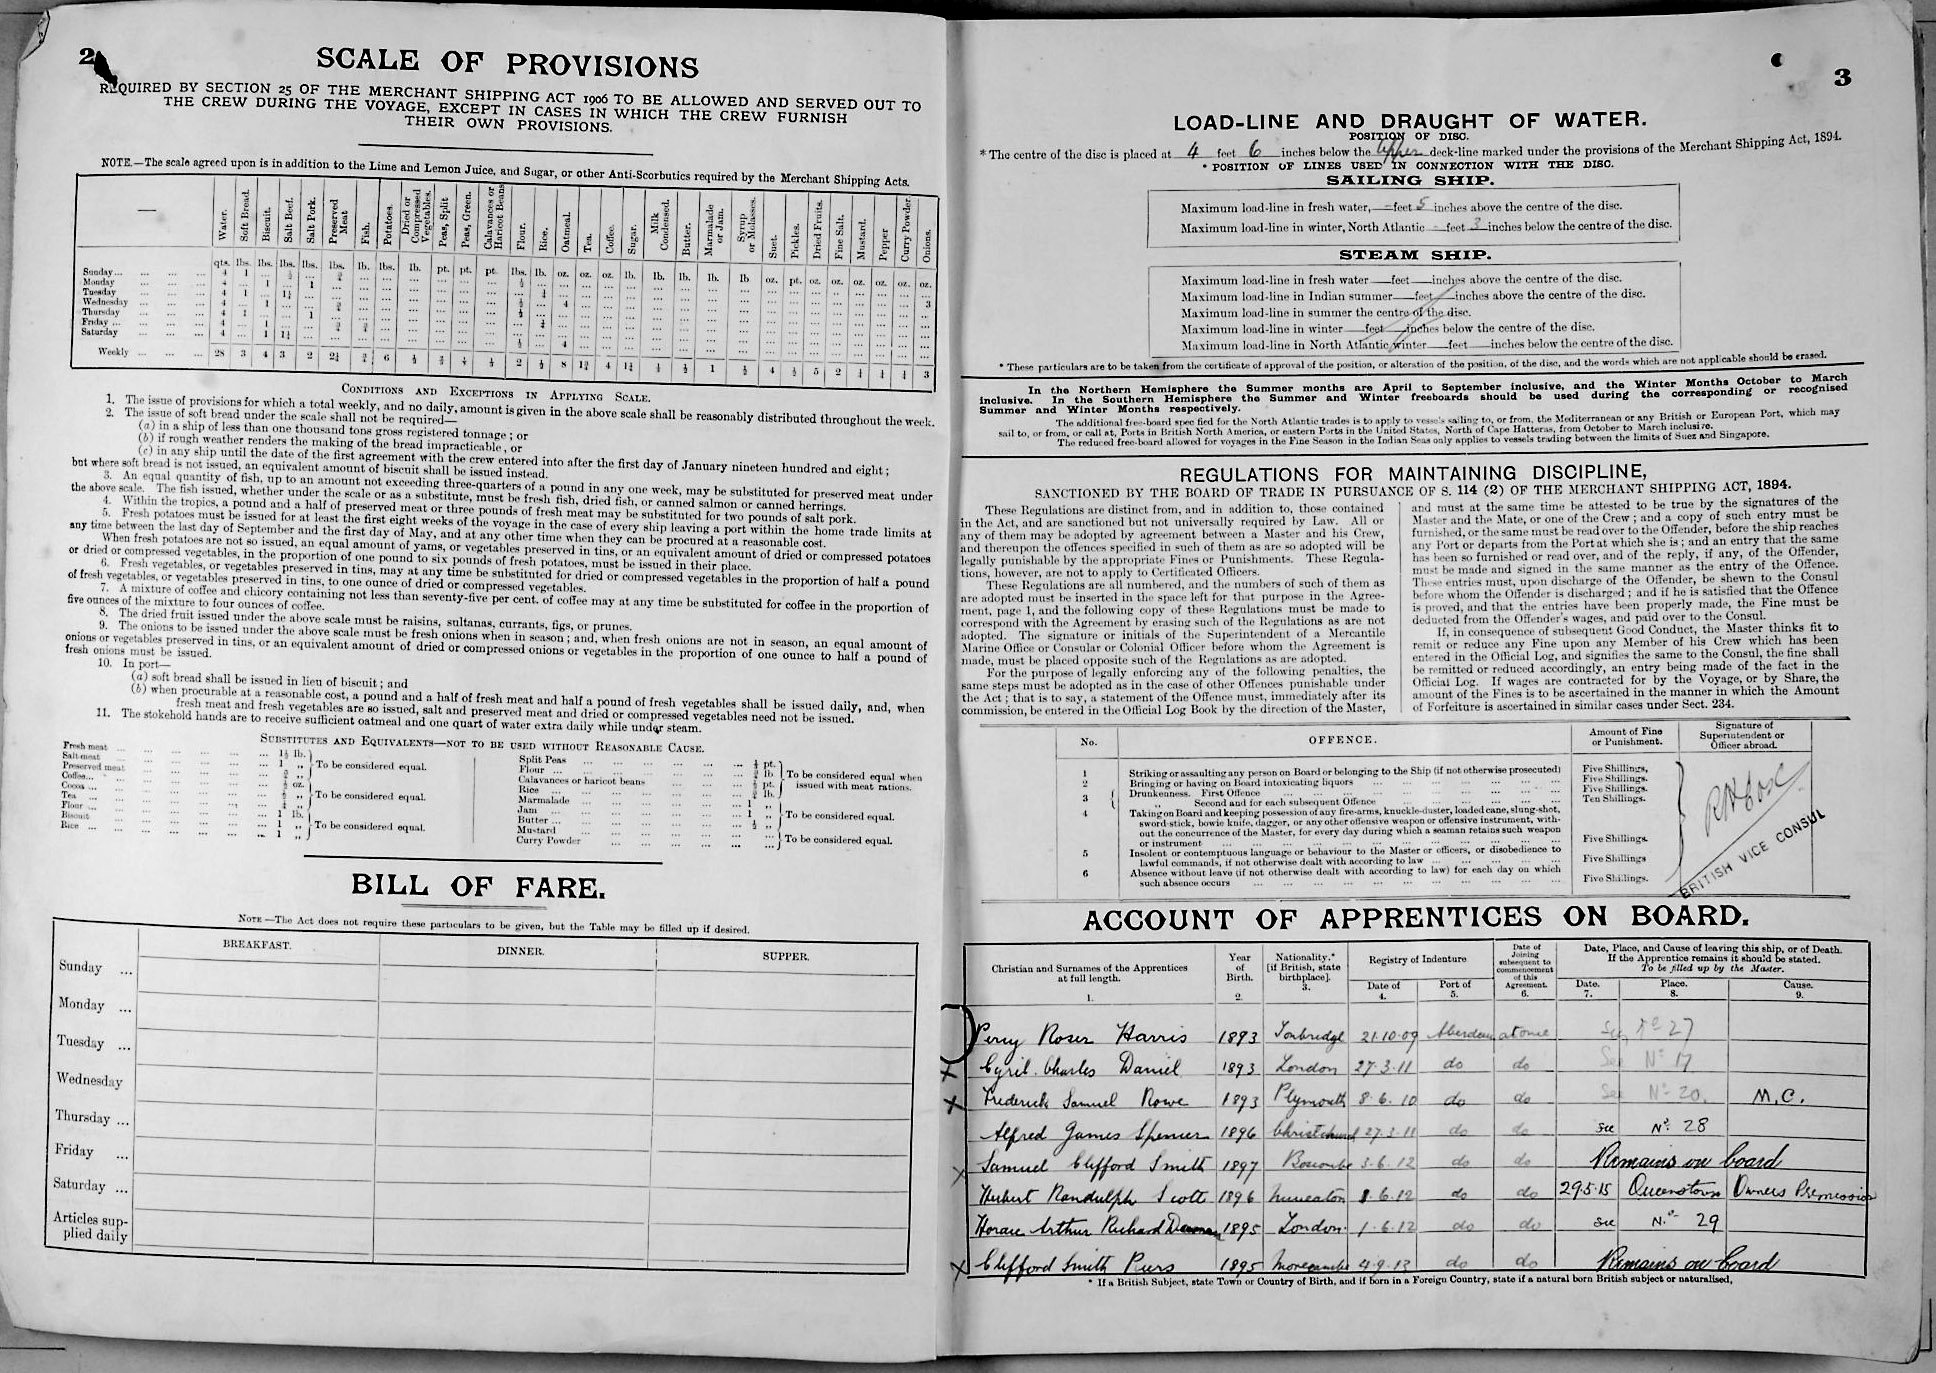 2
SCALE OF PROVISIONS
REQUIRED BY SECTION 25 OF THE MERCHANT SHIPPING ACT 1906 TO BE ALLOWED AND SERVED OUT TO
THE CREW DURING THE VOYAGE, EXCEPT IN CASES IN WHICH THE CREW FURNISH
THEIR OWN PROVISIONS.
NOTE.—The scale agreed upon is in addition to the Lime and Lemon Juice, and Sugar, or other Anti-Scorbutics required by the Merchant Shipping Acts.
Water. Soft Bread. Biscuit. Salt Beef. Salt Pork. Preserved Meat Fish. Potatoes. Dried or Compressed Vegetables. Peas, Split Peas, Green. Calavances or Haricot Beans Flour. Rice. Oatmeal. Tea. Coffee. Sugar. Milk Condensed. Butter. Marmalade or Jam. Syrup or Molasses. Suet. Pickles. Dried Fruits. Fine Salt. Mustard. Pepper Curry Powder. Onions.
qts. lbs. lbs. lbs. lbs. lbs. lb. lbs. lb. pt. pt. pt. lbs. lb. oz. oz. oz. lb. lb. lb. lb. lb oz. pt. oz. oz. oz. oz. oz. oz.
Sunday... 4 1
Monday 4 1 1
Tuesday 4 1 1½
Wednesday 4 1 4
Thursday 4 1 1
Friday ... 4 1
Saturday 4 1 1½ 4
Weekly 28 3 4 3 2 2¼ 6 2 8 4 1 4 5 2 3
CONDITIONS AND EXCEPTIONS IN APPLYING SCALE.
1. The issue of provisions for which a total weekly, and no daily, amount is given in the above scale shall be reasonably distributed throughout the week.
2. The issue of soft bread under the scale shall not be required—
(a) in a ship of less than one thousand tons gross registered tonnage; or
(b) if rough weather renders the making of the bread impracticable, or
(c) in any ship until the date of the first agreement with the crew entered into after the first day of January nineteen hundred and eight;
but where soft bread is not issued, an equivalent amount of biscuit shall be issued instead.
3. An equal quantity of fish, up to an amount not exceeding three-quarters of a pound in any one week, may be substituted for preserved meat under
the above scale. The fish issued, whether under the scale or as a substitute, must be fresh fish, dried fish, or canned salmon or canned herrings.
4. Within the tropics, a pound and a half of preserved meat or three pounds of fresh meat may be substituted for two pounds of salt pork.
5. Fresh potatoes must be issued for at least the first eight weeks of the voyage in the case of every ship leaving a port within the home trade limits at
any time between the last day of September and the first day of May, and at any other time when they can be procured at a reasonable cost.
When fresh potatoes are not so issued, an equal amount of yams, or vegetables preserved in tins, or an equivalent amount of dried or compressed potatoes
or dried or compressed vegetables, in the proportion of one pound to six pounds of fresh potatoes, must be issued in their place.
6. Fresh vegetables, or vegetables preserved in tins, may at any time be substituted for dried or compressed vegetables in the proportion of half a pound
of fresh vegetables, or vegetables preserved in tins, to one ounce of dried or compressed vegetables.
7. A mixture of coffee and chicory containing not less than seventy-five per cent. of coffee may at any time be substituted for coffee in the proportion of
five ounces of the mixture to four ounces of coffee.
8. The dried fruit issued under the above scale must be raisins, sultanas, currants, figs, or prunes.
9. The onions to be issued under the above scale must be fresh onions when in season; and, when fresh onions are not in season, an equal amount of
onions or vegetables preserved in tins, or an equivalent amount of dried or compressed onions or vegetables in the proportion of one ounce to half a pound of
fresh onions must be issued.
10. In port—
(a) soft bread shall be issued in lieu of biscuit; and
(b) when procurable at a reasonable cost, a pound and a half of fresh meat and half a pound of fresh vegetables shall be issued daily, and, when
fresh meat and fresh vegetables are so issued, salt and preserved meat and dried or compressed vegetables need not be issued.
11. The stokehold hands are to receive sufficient oatmeal and one quart of water extra daily while under steam.
SUBSTITUTES AND EQUIVALENTS—NOT TO BE USED WITHOUT REASONABLE CAUSE.
Fresh meat 1½ lb.
Salt meat 1 „ To be considered equal.
Preserved meat
Coffee...
Cocoa ... To be considered equal.
Tea
Flour ... 1 lb.
Biscuit 1 „ To be considered equal.
Rice ... 1 „
Split Peas
Flour ... To be considered equal when
Calavances or haricot beans issued with meat rations.
Rice
Marmalade 1 „
Jam 1 „ To be considered equal.
Butter ...
Mustard To be considered equal.
Curry Powder
BILL OF FARE.
NOTE—The Act does not require these particulars to be given, but the Table may be filled up if desired.
BREAKFAST. DINNER. SUPPER.
Sunday ...
Monday ...
Tuesday ...
Wednesday
Thursday ...
Friday ...
Saturday ...
Articles sup-
plied daily
3
LOAD-LINE AND DRAUGHT OF WATER.
POSITION OF DISC.
* The centre of the disc is placed at 4 feet 6 inches below the upper deck-line marked under the provisions of the Merchant Shipping Act, 1894.
* POSITION OF LINES USED IN CONNECTION WITH THE DISC.
SAILING SHIP.
Maximum load-line in fresh water, – feet 5 inches above the centre of the disc.
Maximum load-line in winter, North Atlantic - feet 3 inches below the centre of the disc.
STEAM SHIP.
Maximum load-line in fresh water —feet—inches above the centre of the disc.
Maximum load-line in Indian summer—feet—inches above the centre of the disc.
Maximum load-line in summer the centre of the disc.
Maximum load-line in winter —feet—inches below the centre of the disc.
Maximum load-line in North Atlantic winter —feet—inches below the centre of the disc.
* These particulars are to be taken from the certificate of approval of the position, or alteration of the position, of the disc, and the words which are not applicable should be erased.
In the Northern Hemisphere the Summer months are April to September inclusive, and the Winter Months October to March
inclusive. In the Southern Hemisphere the Summer and Winter freeboards should be used during the corresponding or recognised
Summer and Winter Months respectively.
The additional free-board specified for the North Atlantic trades is to apply to vessels sailing to, or from, the Mediterranean or any British or European Port, which may
sail to, or from, or call at, Ports in British North America, or eastern Ports in the United States, North of Cape Hatteras, from October to March inclusive.
The reduced free-board allowed for voyages in the Fine Season in the Indian Seas only applies to vessels trading between the limits of Suez and Singapore.
REGULATIONS FOR MAINTAINING DISCIPLINE,
SANCTIONED BY THE BOARD OF TRADE IN PURSUANCE OF S. 114 (2) OF THE MERCHANT SHIPPING ACT, 1894.
These Regulations are distinct from, and in addition to, those contained
in the Act, and are sanctioned but not universally required by Law. All or
any of them may be adopted by agreement between a Master and his Crew,
and thereupon the offences specified in such of them as are so adopted will be
legally punishable by the appropriate Fines or Punishments. These Regula-
tions, however, are not to apply to Certificated Officers.
These Regulations are all numbered, and the numbers of such of them as
are adopted must be inserted in the space left for that purpose in the Agree-
ment, page 1, and the following copy of these Regulations must be made to
correspond with the Agreement by erasing such of the Regulations as are not
adopted. The signature or initials of the Superintendent of a Mercantile
Marine Office or Consular or Colonial Officer before whom the Agreement is
made, must be placed opposite such of the Regulations as are adopted.
For the purpose of legally enforcing any of the following penalties, the
same steps must be adopted as in the case of other Offences punishable under
the Act; that is to say, a statement of the Offence must, immediately after its
commission, be entered in the Official Log Book by the direction of the Master,
and must at the same time be attested to be true by the signatures of the
Master and the Mate, or one of the Crew; and a copy of such entry must be
furnished, or the same must be read over to the Offender, before the ship reaches
any Port or departs from the Port at which she is; and an entry that the same
has been so furnished or read over, and of the reply, if any, of the Offender,
must be made and signed in the same manner as the entry of the Offence.
These entries must, upon discharge of the Offender, be shewn to the Consul
before whom the Offender is discharged; and if he is satisfied that the Offence
is proved, and that the entries have been properly made, the Fine must be
deducted from the Offender's wages, and paid over to the Consul.
If, in consequence of subsequent Good Conduct, the Master thinks fit to
remit or reduce any Fine upon any Member of his Crew which has been
entered in the Official Log, and signifies the same to the Consul, the fine shall
be remitted or reduced accordingly, an entry being made of the fact in the
Official Log. If wages are contracted for by the Voyage, or by Share, the
amount of the Fines is to be ascertained in the manner in which the Amount
of Forfeiture is ascertained in similar cases under Sect. 234.
No. OFFENCE. Amount of Fine or Punishment. Signature of Superintendent or Officer abroad.
1 Striking or assaulting any person on Board or belonging to the Ship (if not otherwise prosecuted) Five Shillings,
2 Bringing or having on Board intoxicating liquors Five Shillings.
3 Drunkenness. First Offence Five Shillings.
„ Second and for each subsequent Offence Ten Shillings.
4 Taking on Board and keeping possession of any fire-arms, knuckle-duster, loaded cane, slung-shot,
sword-stick, bowie knife, dagger, or any other offensive weapon or offensive instrument, with-
out the concurrence of the Master, for every day during which a seaman retains such weapon
or instrument Five Shillings.
5 Insolent or contemptuous language or behaviour to the Master or officers, or disobedience to
lawful commands, if not otherwise dealt with according to law Five Shillings
6 Absence without leave (if not otherwise dealt with according to law) for each day on which
such absence occurs Five Shillings.
BRITISH VICE CONSUL
ACCOUNT OF APPRENTICES ON BOARD.
Christian and Surnames of the Apprentices at full length. 1. Year of Birth. 2. Nationality.* [if British, state birthplace]. 3. Registry of Indenture Date of 4. Port of 5. Date of Joining subsequent to commencement of this Agreement. 6. Date, Place, and Cause of leaving this ship, or of Death. If the Apprentice remains it should be stated. To be filled up by the Master. Date. 7. Place. 8. Cause. 9.
Percy Roser Harris 1893 Tonbridge 21.10.09 Aberdeen at once See No 27
Cyril Charles Daniel 1893 London 27.3.11 do do See No 17
Frederick Samuel Rowe 1893 Plymouth 8.6.10 do do See No 20. M.C.
Alfred James Spencer 1896 Christchurch 27.3.11 do do see No 28
Samuel Clifford Smith 1897 Boscombe 3.6.12 do do Remains on board
Herbert Randulph Scott 1896 Nuneaton 1.6.12 do do 29.5.15 Queenstown Owners Permission
Horace Arthur Richard 1895 London. 1.6.12 do do see No 29
Clifford Smith Piers 1895 Morecambe 4.9.13 do do Remains on board
* If a British Subject, state Town or Country of Birth, and if born in a Foreign Country, state if a natural born British subject or naturalised,